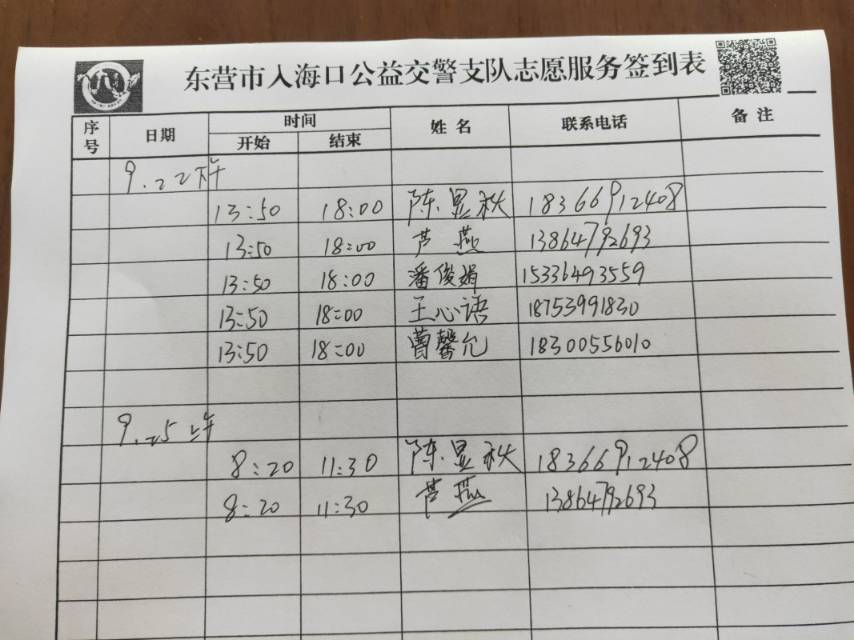 东营市入海口公益交警支队志愿服务签到表
序号 日期 时间 开始 结束 姓名 联系电话 备注
9.22下午
13:50 18:00 陈显秋 18366912408
13:50 18:00 芦燕 13864792693
13:50 18:00 潘俊娟 15336493559
13:50 18:00 王心语 18753991830
13:50 18:00 曹馨允 18300556010
9.25上午
8:20 11:30 陈显秋 18366912408
8:20 11:30 芦燕 13864792693